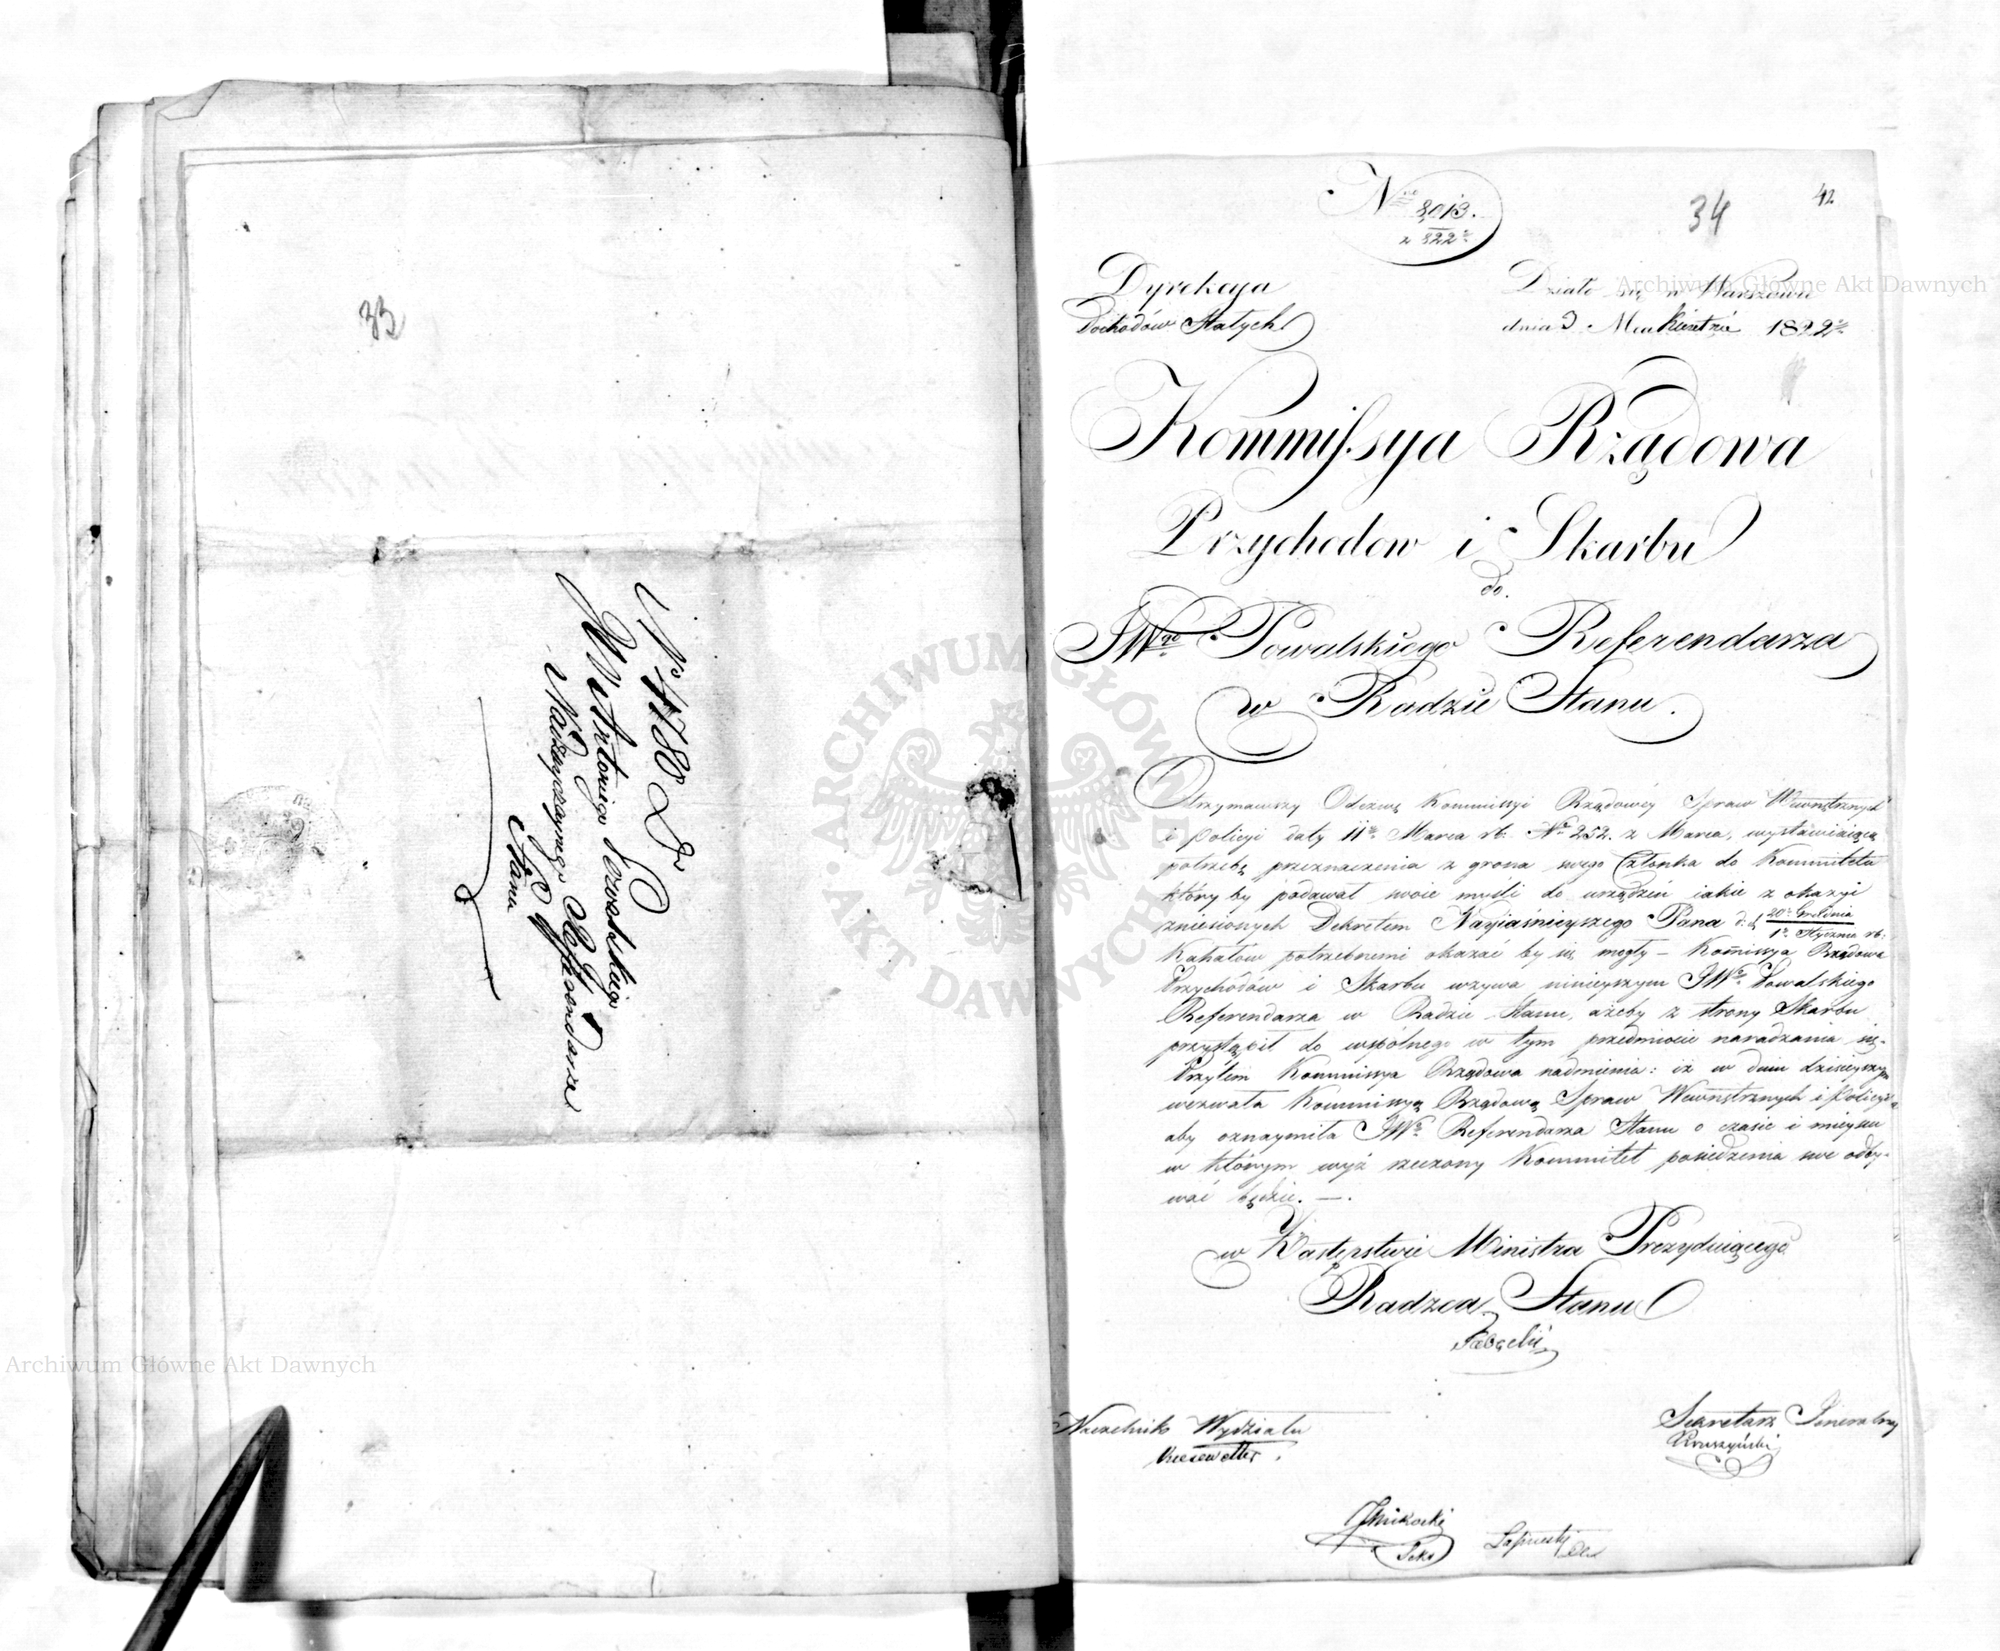 33
No 4780 D
JW Antoniego Kozubskiego
Nadzwyczaynego Refferendarza
Stanu
34
42
Nro 8013.
z 822
Dyrekcya
Dochodów Stałych
Działo się w Warszawie
dnia 3 Mca Kwietnia 1822
Kommissya Rządowa
Przychodow i Skarbu
do.
JWgo Referendarza
w Radzie Stanu.
Otrzymawszy Odezwę Kommissyi Rządowéy Spraw Wewnętrznych
i Policyi daty 11o Marca rb. No 252. z Marca, wystawiaiącą
potrzebę przeznaczenia z grona swego Członka do Kommitetu
który by podawał swoie myśli do urządzeń iakie z okazyi
zniesionych Dekretem Nayiaśnieyszego Pana d. 20o Grudnia
1o Stycznia rb.
Kahałów potrzebnemi okazać by się mogły – Kommissya Rządowa
Przychodów i Skarbu wzywa ninieyszym JWo
Referendarza w Radzie Stanu, ażeby z strony Skarbu
przystąpił do wspólnego w tym przedmiocie naradzania się.
Przytem Kommissya Rządowa nadmienia: iż w dniu dzisieyszym
wezwała Kommissyą Rządową Spraw Wewnętrznych i Policyi,
aby oznaymiła JWo Referendarza Stanu o czasie i mieyscu
w którym wyż rzeczony Kommitet posiedzenia swe odby-
wać będzie. —.
w Zastępstwie Ministra Prezyduiącego
Radzca Stanu
Naczelnik Wydziału
Kiesewetter.
Sekretarz Jeneralny
Kruszyński
Archiwum Główne Akt Dawnych
Archiwum Główne Akt Dawnych
ARCHIWUM GŁÓWNE AKT DAWNYCH